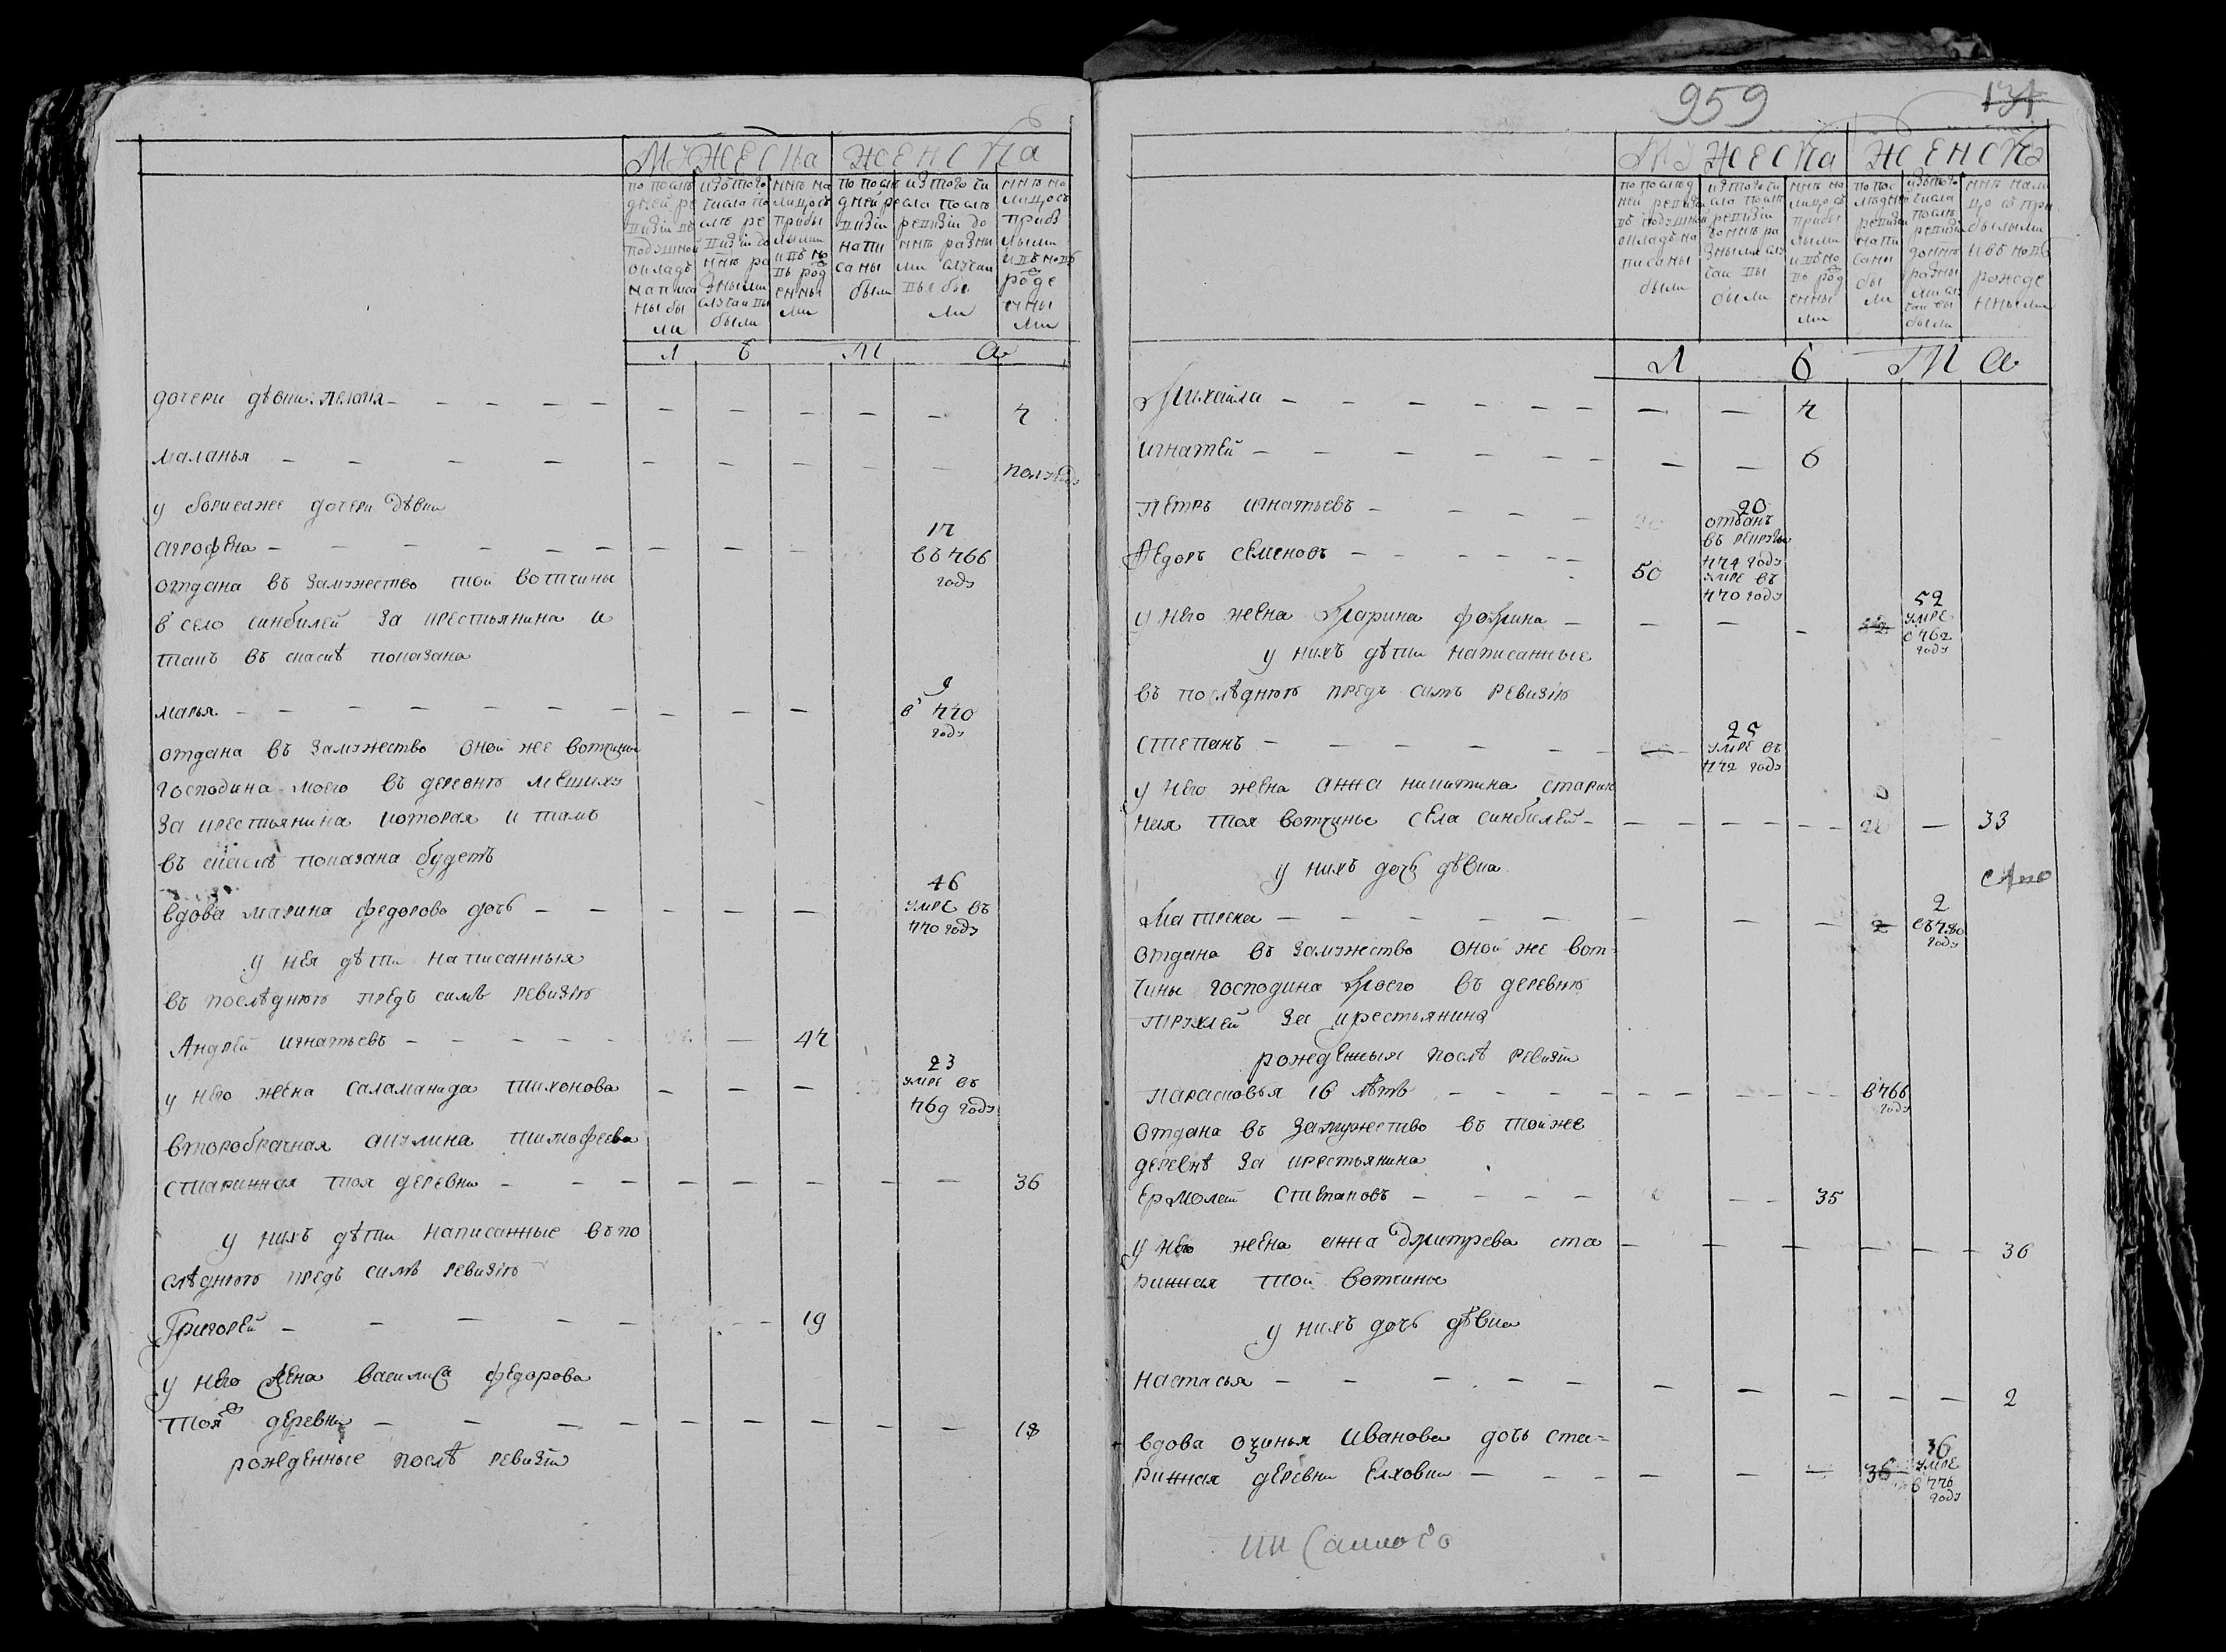 МУЖЕСКА ЖЕНСКА
по послѣ
дней ре
визіи въ
подушной
окладъ
написа
ны бы
ли
изъ того
числа по
слѣ ре
визіи до
ннѣ ра
зными
случаи вы
были
ннѣ на
лицо съ
прибы
лыми
и въ но
въ рож
енны
ми
по послѣ
дней ре
визіи
напи
саны
были
из того чи
сла послѣ
ревизіи до
ннѣ разны
ми случаи
выбы
ли
ннѣ на
лицо съ
прибы
лыми
и въ новъ
рожде
нны
ми
Л Ѣ Т А
дочери дѣвки: пелагея 7
маланья полгоду
у борисаже дочери дѣвки
агрофена 17
въ 766
году
отдана въ замужество той вотчины
в село синбилей за крестьянина и
тамъ въ скаскѣ показана
марья 9
в 770
году
отдана въ замужество оной же вотчины
господина моего въ деревню
за крестьянина которая и тамъ
въ скаскѣ показана будетъ
вдова марина федорова дочь 46
умре въ
770 году
у нея дѣти написанныя
въ послѣднюю предъ симъ ревизію
Андрей игнатьевъ 47
у него жена саламанида тихонова 23
умре въ
769 году
второбрачная акулина тимофеева
старинная тоя деревни 36
у нихъ дѣти написанные въ по
слѣднюю предъ симъ ревизію
Григорей 19
у него жена василиса федорова
тоя деревни 18
рожденные послѣ ревизіи
959
131
МУЖЕСКА ЖЕНСКА
по послѣд
ней ревизіи
въ подушной
окладъ на
писаны
были
из того чи
сла послѣ
ревизіи
до ннѣ ра
зными слу
чаи вы
были
ннѣ на
лицо съ
прибы
лыми
и въ но
въ рожд
енны
ми
по пос
лѣдней
ревизіи
напи
саны
бы
ли
изъ того
числа
послѣ
ревизіи
до ннѣ
разны
ми слу
чаи вы
были
ннѣ нали
цо съ при
былыми
и въ новъ
рожде
нными
Л Ѣ Т А
Михайла 7
игнатей 6
Петръ игнатьевъ 20
отданъ
въ рекруты
774 году
Федоръ семеновъ 50 умре въ
770 году
у него жена Марина фомина 52
умре
в 762
году
у нихъ дѣти написанные
въ послѣднюю предъ симъ ревизію
степанъ 25
умре въ
772 году
у него жена анна никитина старин
ная тоя вотчины села синбилей 33
у нихъ дочь дѣвка
Матрена 2 2
въ 780
году
отдана въ замужество оной же вот-
чины господина моего въ деревню
трухлей за крестьянина
рожденныя послѣ ревизіи
парасковья 16 лѣтъ в 766
году
отдана въ замужество въ той же
деревнѣ за крестьянина
Ермолай Степановъ 35
у него жена анна дмитрева ста 36
ринная той вотчины
у нихъ дочь дѣвка
настасья 2
вдова Иванова дочь ста-
ринная деревни Елховки 36 36
умре
в 776
году